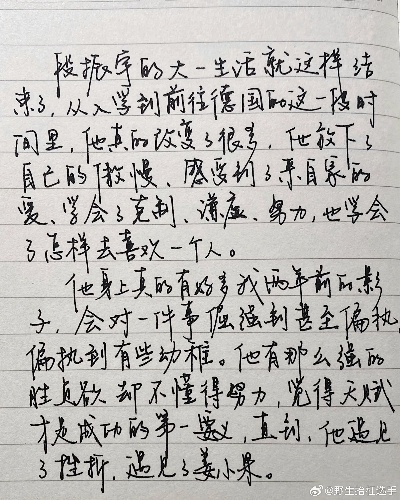 段振宇的大一生活就这样结
束了，从入学到前往德国的这一段时
间里，他真的改变了很多，他放下了
自己的傲慢、感受到了来自家的
爱、学会了克制、谦虚、努力，也学会
了怎样去喜欢一个人。
他身上真的有好多我两年前的影
子，会对一件事倔强到甚至偏执，
偏执到有些幼稚。他有那么强的
胜负欲却不懂得努力，觉得天赋
才是成功的第一要义，直到，他遇见
了挫折，遇见了姜小果。
@野生给社选手